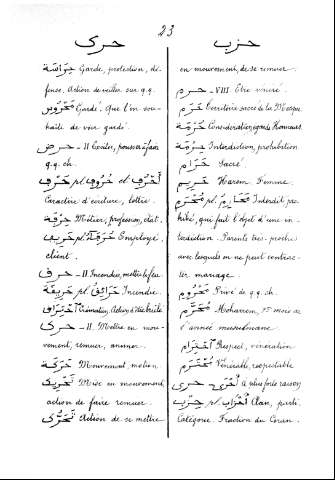 23
حرى
حزب
حِرَاسَة Garde, protection, dé-
fense. Action de veiller sur q.q.
مَحْرُوس Gardé. Que l'on sou-
haite de voir gardé.
حرض - II Exciter, pousser à faire
q.q. ch.
حَرْف pl. حُرُوف et أَحْرُف
Caractère d'écriture, lettre.
حِرْفَة Métier, profession, état.
حَرِيف pl. Employé,
client.
حرق - II Incendier, mettre le feu
حَرِيقَة pl. حَرَائِق Incendie.
اِحْتِرَاق Crémation, Action d'être brûlé
حرك - II Mettre en mou-
vement, remuer, animer.
حَرَكَة Mouvement, motion
تَحْرِيك Mise en mouvement,
action de faire remuer.
تَحَرُّك Action de se mettre
en mouvement, de se remuer.
حرم - VIII Être vénéré.
حَرَم Territoire sacré de la Mecque
حُرْمَة Considération, égards, Honneurs
حُرْمَة Interdiction, prohibition
حَرَام Sacré.
حَرِيم Harem Femme.
مَحْرَم pl. مَحَارِم Interdit, pro-
hibé, qui fait l'objet d'une in-
terdiction. Parente très-proche
avec lesquels on ne peut contrac-
ter mariage.
مَحْرُوم Privé de q.q. ch.
مُحَرَّم Moharrem, 1er mois de
l'année musulmane
اِحْتِرَام Respect, vénération
مُحْتَرَم Vénérable, respectable
حرى أَحْرَى A plus forte raison
حِزْب pl. أَحْزَاب Clan, parti.
Catégorie. Fraction du Coran.